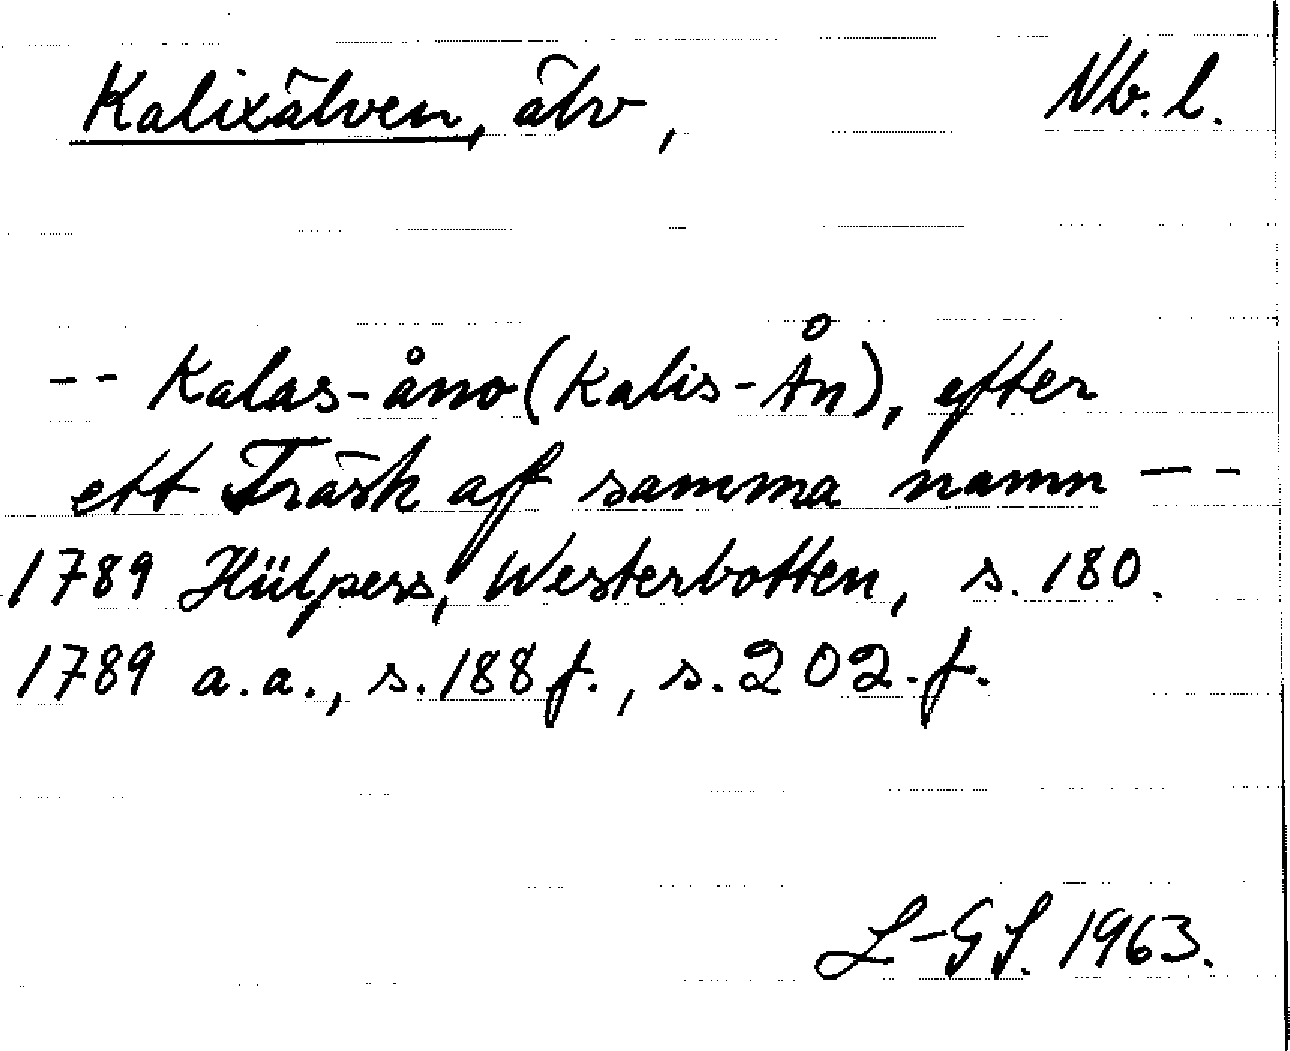 Kalixälven, älv, Nb. l.
-- Kalas-åno (Kalis-Ån), efter
ett Träsk aff samma namn --
1789 Hülpers, Westerbotten, s. 180.
1789 a.a., s. 188 f., s. 202. f.
L-GS. 1963.